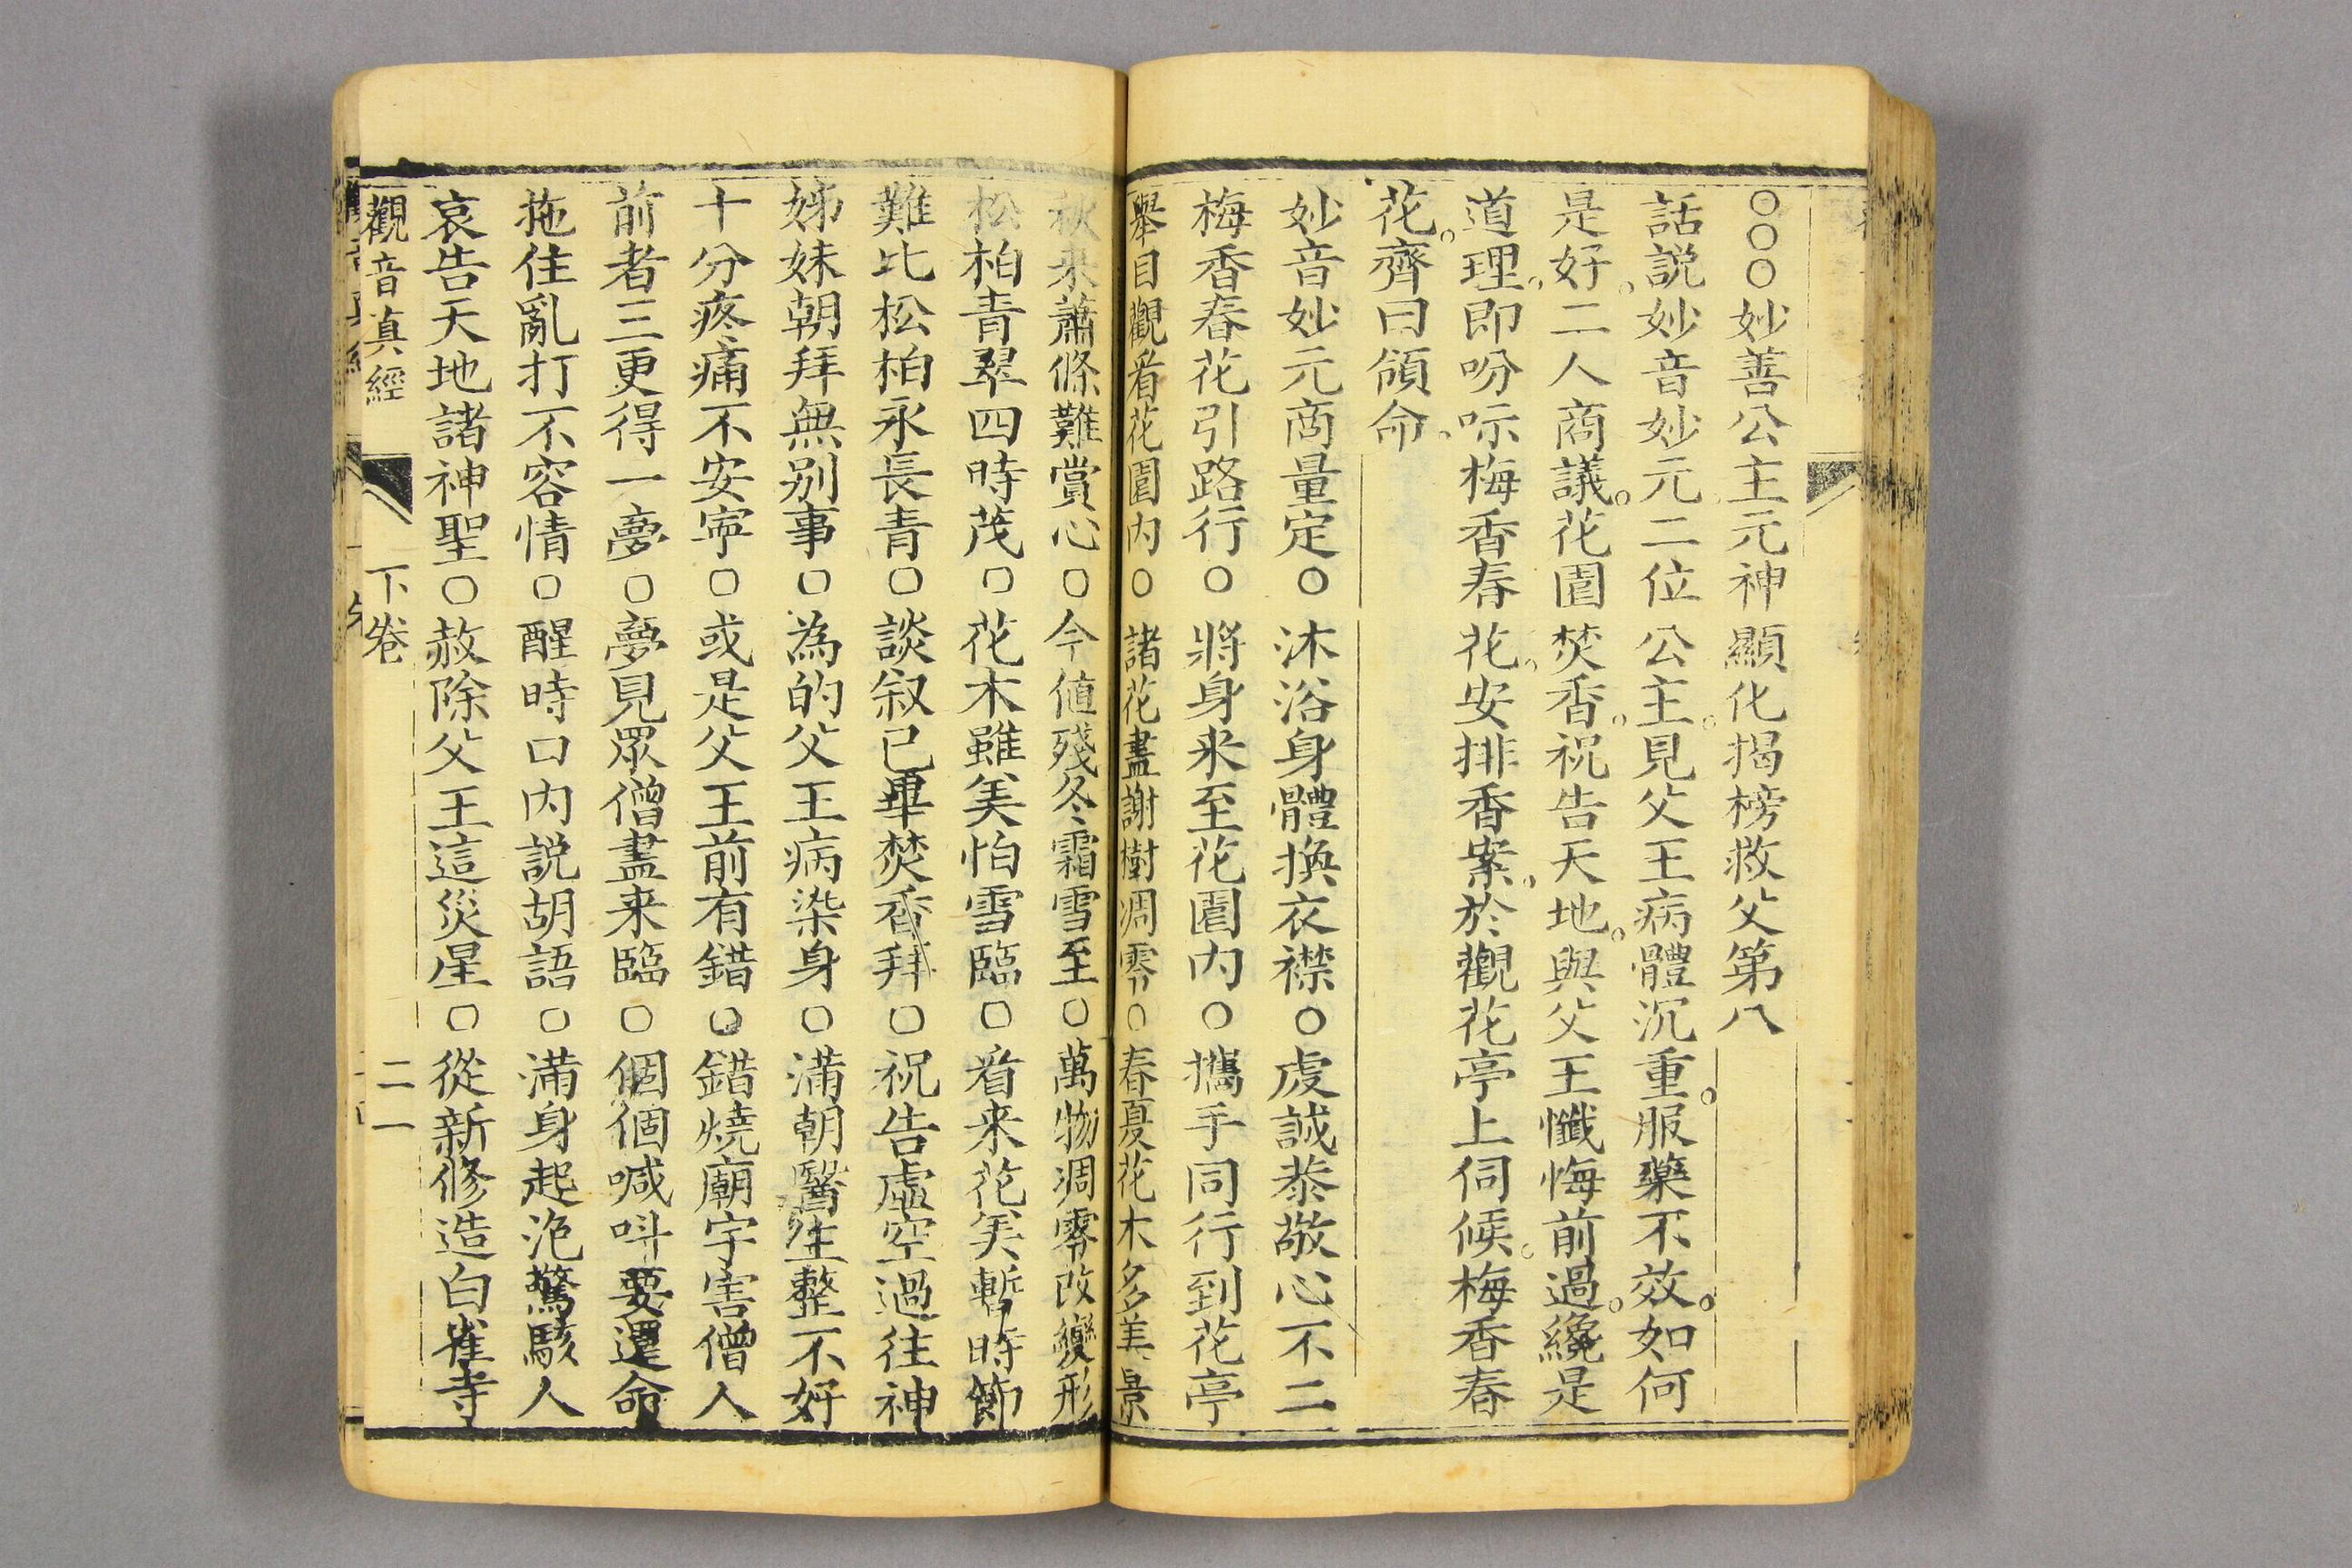 ○○○妙善公主元神顯化揭榜救父第八
話説妙音妙元二位公主。見父王病體沉重。服藥不效。如何
是好。二人商議。花園焚香。祝告天地。與父王懺悔前過。纔是
道理。即吩咐梅香春花。安排香案。於觀花亭上伺候。梅香春
花。齊曰領命。
妙音妙元商量定○沐浴身體換衣襟○虔誠恭敬心不二
梅香春花引路行○將身来至花園内○攜手同行到花亭
舉目觀看花園内○諸花盡謝樹凋零○春夏花木多美景
秋来蕭條難賞心○今值殘冬霜雪至○萬物凋零改變形
松柏青翠四時茂○花木雖美怕雪臨○看来花美暫時節
難比松柏永長青○談叙已畢焚香拜○祝告虛空過往神
姊妹朝拜無别事○為的父王病染身○滿朝醫生整不好
十分疼痛不安寧○或是父王前有錯○錯燒廟宇害僧人
前者三更得一夢○夢見眾僧盡来臨○個個喊呌要還命
拖住亂打不容情○醒時口内説胡語○滿身起泡驚駭人
哀告天地諸神聖○赦除父王這災星○從新修造白雀寺
觀音真經 下卷 二一